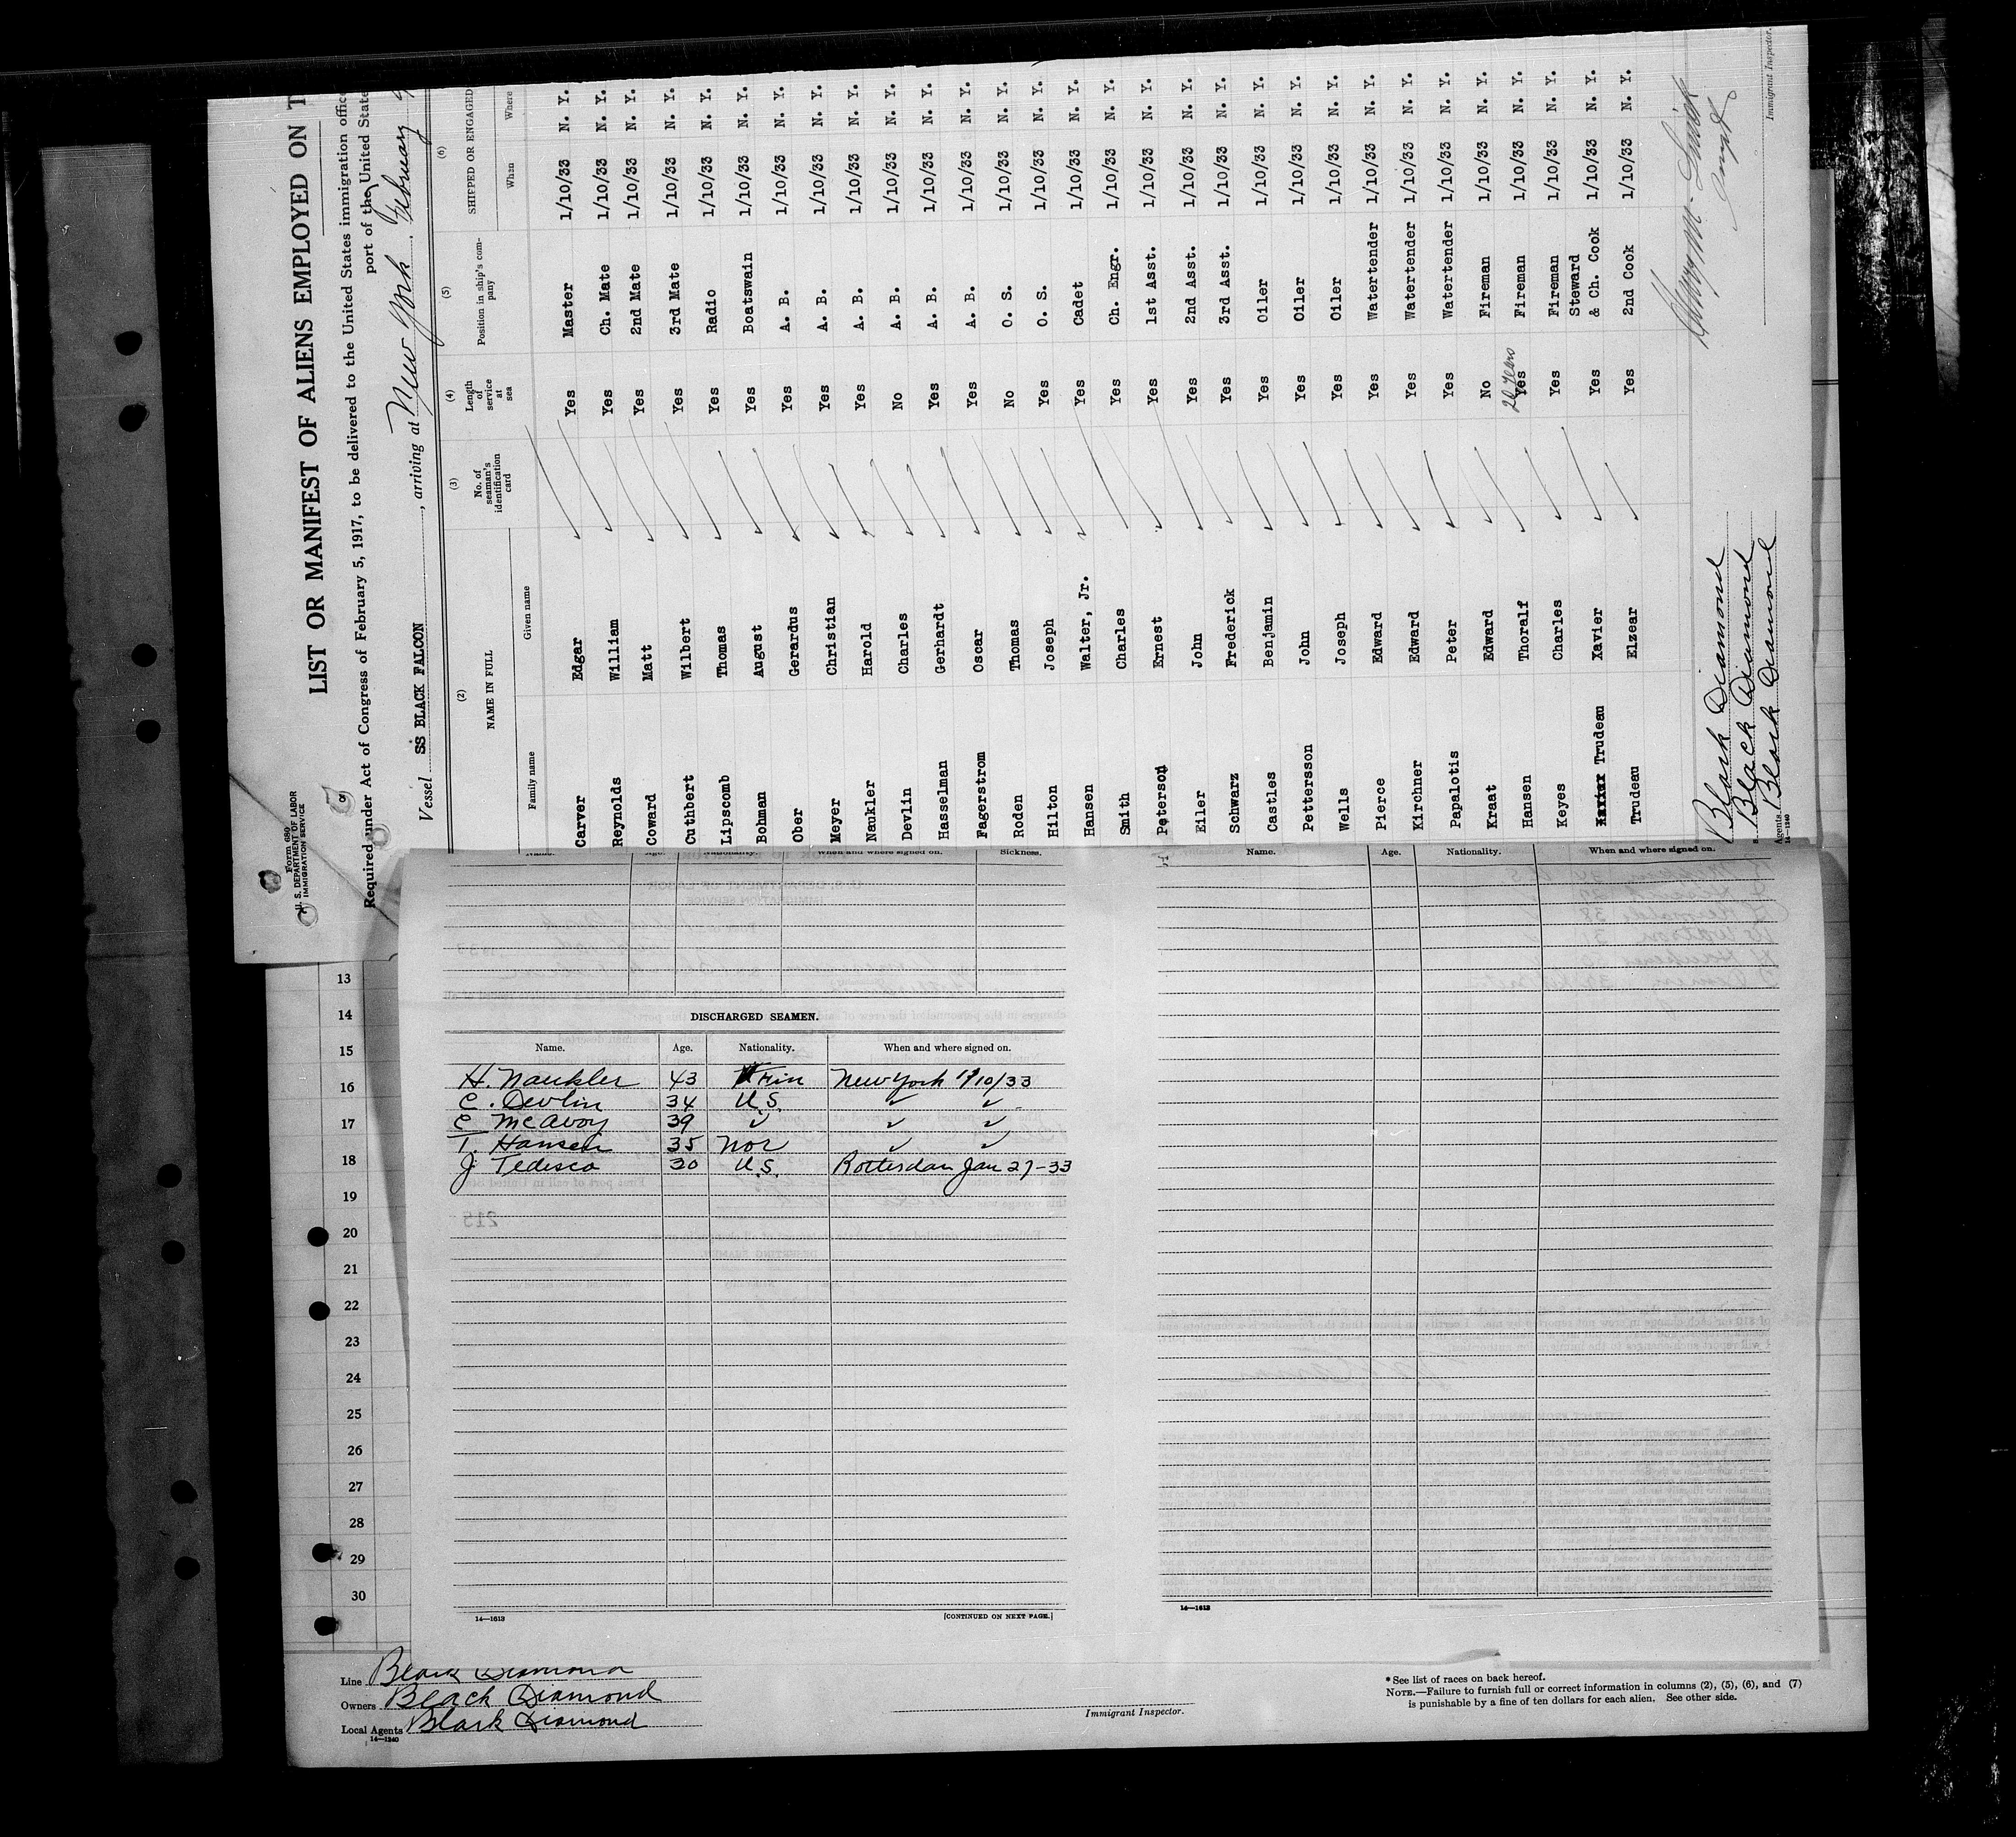 Form 680
U. S. DEPARTMENT OF LABOR
IMMIGRATION SERVICE
LIST OR MANIFEST OF ALIENS EMPLOYED ON T
Required under Act of Congress of February 5, 1917, to be delivered to the United States immigration office
port of the United State
Vessel SS BLACK FALCON, arriving at New York February
(2) (3) (4) (5) (6)
NAME IN FULL No. of seaman's identification card Length of service at sea Position in ship's company SHIPPED OR ENGAGED
Family name Given name When Where
Carver Edgar Yes Master 1/10/33 N. Y.
Reynolds William Yes Ch. Mate 1/10/33 N. Y.
Coward Matt Yes 2nd Mate 1/10/33 N. Y.
Cuthbert Wilbert Yes 3rd Mate 1/10/33 N. Y.
Lipscomb Thomas Yes Radio 1/10/33 N. Y.
Bohman August Yes Boatswain 1/10/33 N. Y.
Ober Gerardus Yes A. B. 1/10/33 N. Y.
Meyer Christian Yes A. B. 1/10/33 N. Y.
Naukler Harold Yes A. B. 1/10/33 N. Y.
Devlin Charles No A. B. 1/10/33 N. Y.
Hasselman Gerhardt Yes A. B. 1/10/33 N. Y.
Fagerstrom Oscar Yes A. B. 1/10/33 N. Y.
Roden Thomas No O. S. 1/10/33 N. Y.
Hilton Joseph Yes O. S. 1/10/33 N. Y.
Hansen Walter, Jr. Yes Cadet 1/10/33 N. Y.
Smith Charles Yes Ch. Engr. 1/10/33 N. Y.
Peterson Ernest Yes 1st Asst. 1/10/33 N. Y.
Eiler John Yes 2nd Asst. 1/10/33 N. Y.
Schwarz Frederick Yes 3rd Asst. 1/10/33 N. Y.
Castles Benjamin Yes Oiler 1/10/33 N. Y.
Pettersson John Yes Oiler 1/10/33 N. Y.
Wells Joseph Yes Oiler 1/10/33 N. Y.
Pierce Edward Yes Watertender 1/10/33 N. Y.
Kirchner Edward Yes Watertender 1/10/33 N. Y.
Papalotis Peter Yes Watertender 1/10/33 N. Y.
Kraat Edward No Fireman 1/10/33 N. Y.
Hansen Thoralf Yes Fireman 1/10/33 N. Y.
Keyes Charles Yes Fireman 1/10/33 N. Y.
Trudeau Xavier Yes Steward & Ch. Cook 1/10/33 N. Y.
Trudeau Elzear Yes 2nd Cook 1/10/33 N. Y.
Black Diamond
Black Diamond
Agents Black Diamond
14—1240
Immigrant Inspector.
Name. Age. Nationality. When and where signed on. Sickness.
DISCHARGED SEAMEN.
Name. Age. Nationality. When and where signed on.
H. Naukler 43 Fin New York 1/10/33
C. Devlin 34 U.S. ✓ ✓
C McAvoy 39 ✓ ✓ ✓
T. Hansen 35 Nor ✓ ✓
J Tedisco 30 U.S. Rotterdam Jan 27-33
14—1613
[CONTINUED ON NEXT PAGE.]
Name. Age. Nationality. When and where signed on.
14—1613
13
14
15
16
17
18
19
20
21
22
23
24
25
26
27
28
29
30
Line Black Diamond
Owners Black Diamond
Local Agents Black Diamond
14—1240
Immigrant Inspector.
* See list of races on back hereof.
NOTE.—Failure to furnish full or correct information in columns (2), (5), (6), and (7)
is punishable by a fine of ten dollars for each alien. See other side.